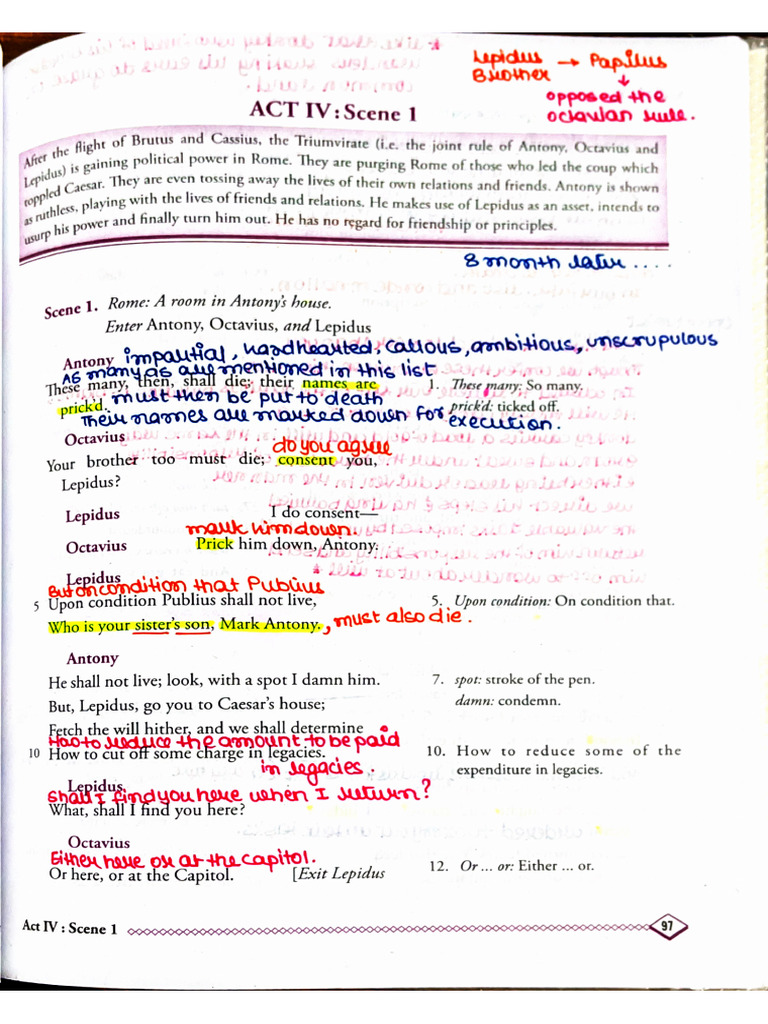 Lepidus → Papilus
Brother ↓
opposed the
octavian rule.
ACT IV: Scene 1
After the flight of Brutus and Cassius, the Triumvirate (i.e. the joint rule of Antony, Octavius and
Lepidus) is gaining political power in Rome. They are purging Rome of those who led the coup which
toppled Caesar. They are even tossing away the lives of their own relations and friends. Antony is shown
as ruthless, playing with the lives of friends and relations. He makes use of Lepidus as an asset, intends to
usurp his power and finally turn him out. He has no regard for friendship or principles.
8 month later ....
Scene 1. Rome: A room in Antony's house.
Enter Antony, Octavius, and Lepidus
Antony impartial, hardhearted, callous, ambitious, unscrupulous
As many as are mentioned in this list
These many, then, shall die; their names are 1. These many: So many.
prick'd. must then be put to death prick'd: ticked off.
Their names are marked down for execution.
Octavius
do you agree
Your brother too must die; consent you,
Lepidus?
Lepidus I do consent—
mark him down.
Octavius Prick him down, Antony.
Lepidus
But on condition that Publius
5 Upon condition Publius shall not live, 5. Upon condition: On condition that.
Who is your sister's son, Mark Antony., must also die.
Antony
He shall not live; look, with a spot I damn him. 7. spot: stroke of the pen.
But, Lepidus, go you to Caesar's house; damn: condemn.
Fetch the will hither, and we shall determine
How to reduce the amount to be paid
10 How to cut off some charge in legacies. 10. How to reduce some of the
in legacies. expenditure in legacies.
Lepidus
Shall I find you here when I return?
What, shall I find you here?
Octavius
Either here or at the Capitol.
Or here, or at the Capitol. [Exit Lepidus 12. Or ... or: Either ... or.
Act IV : Scene 1 97